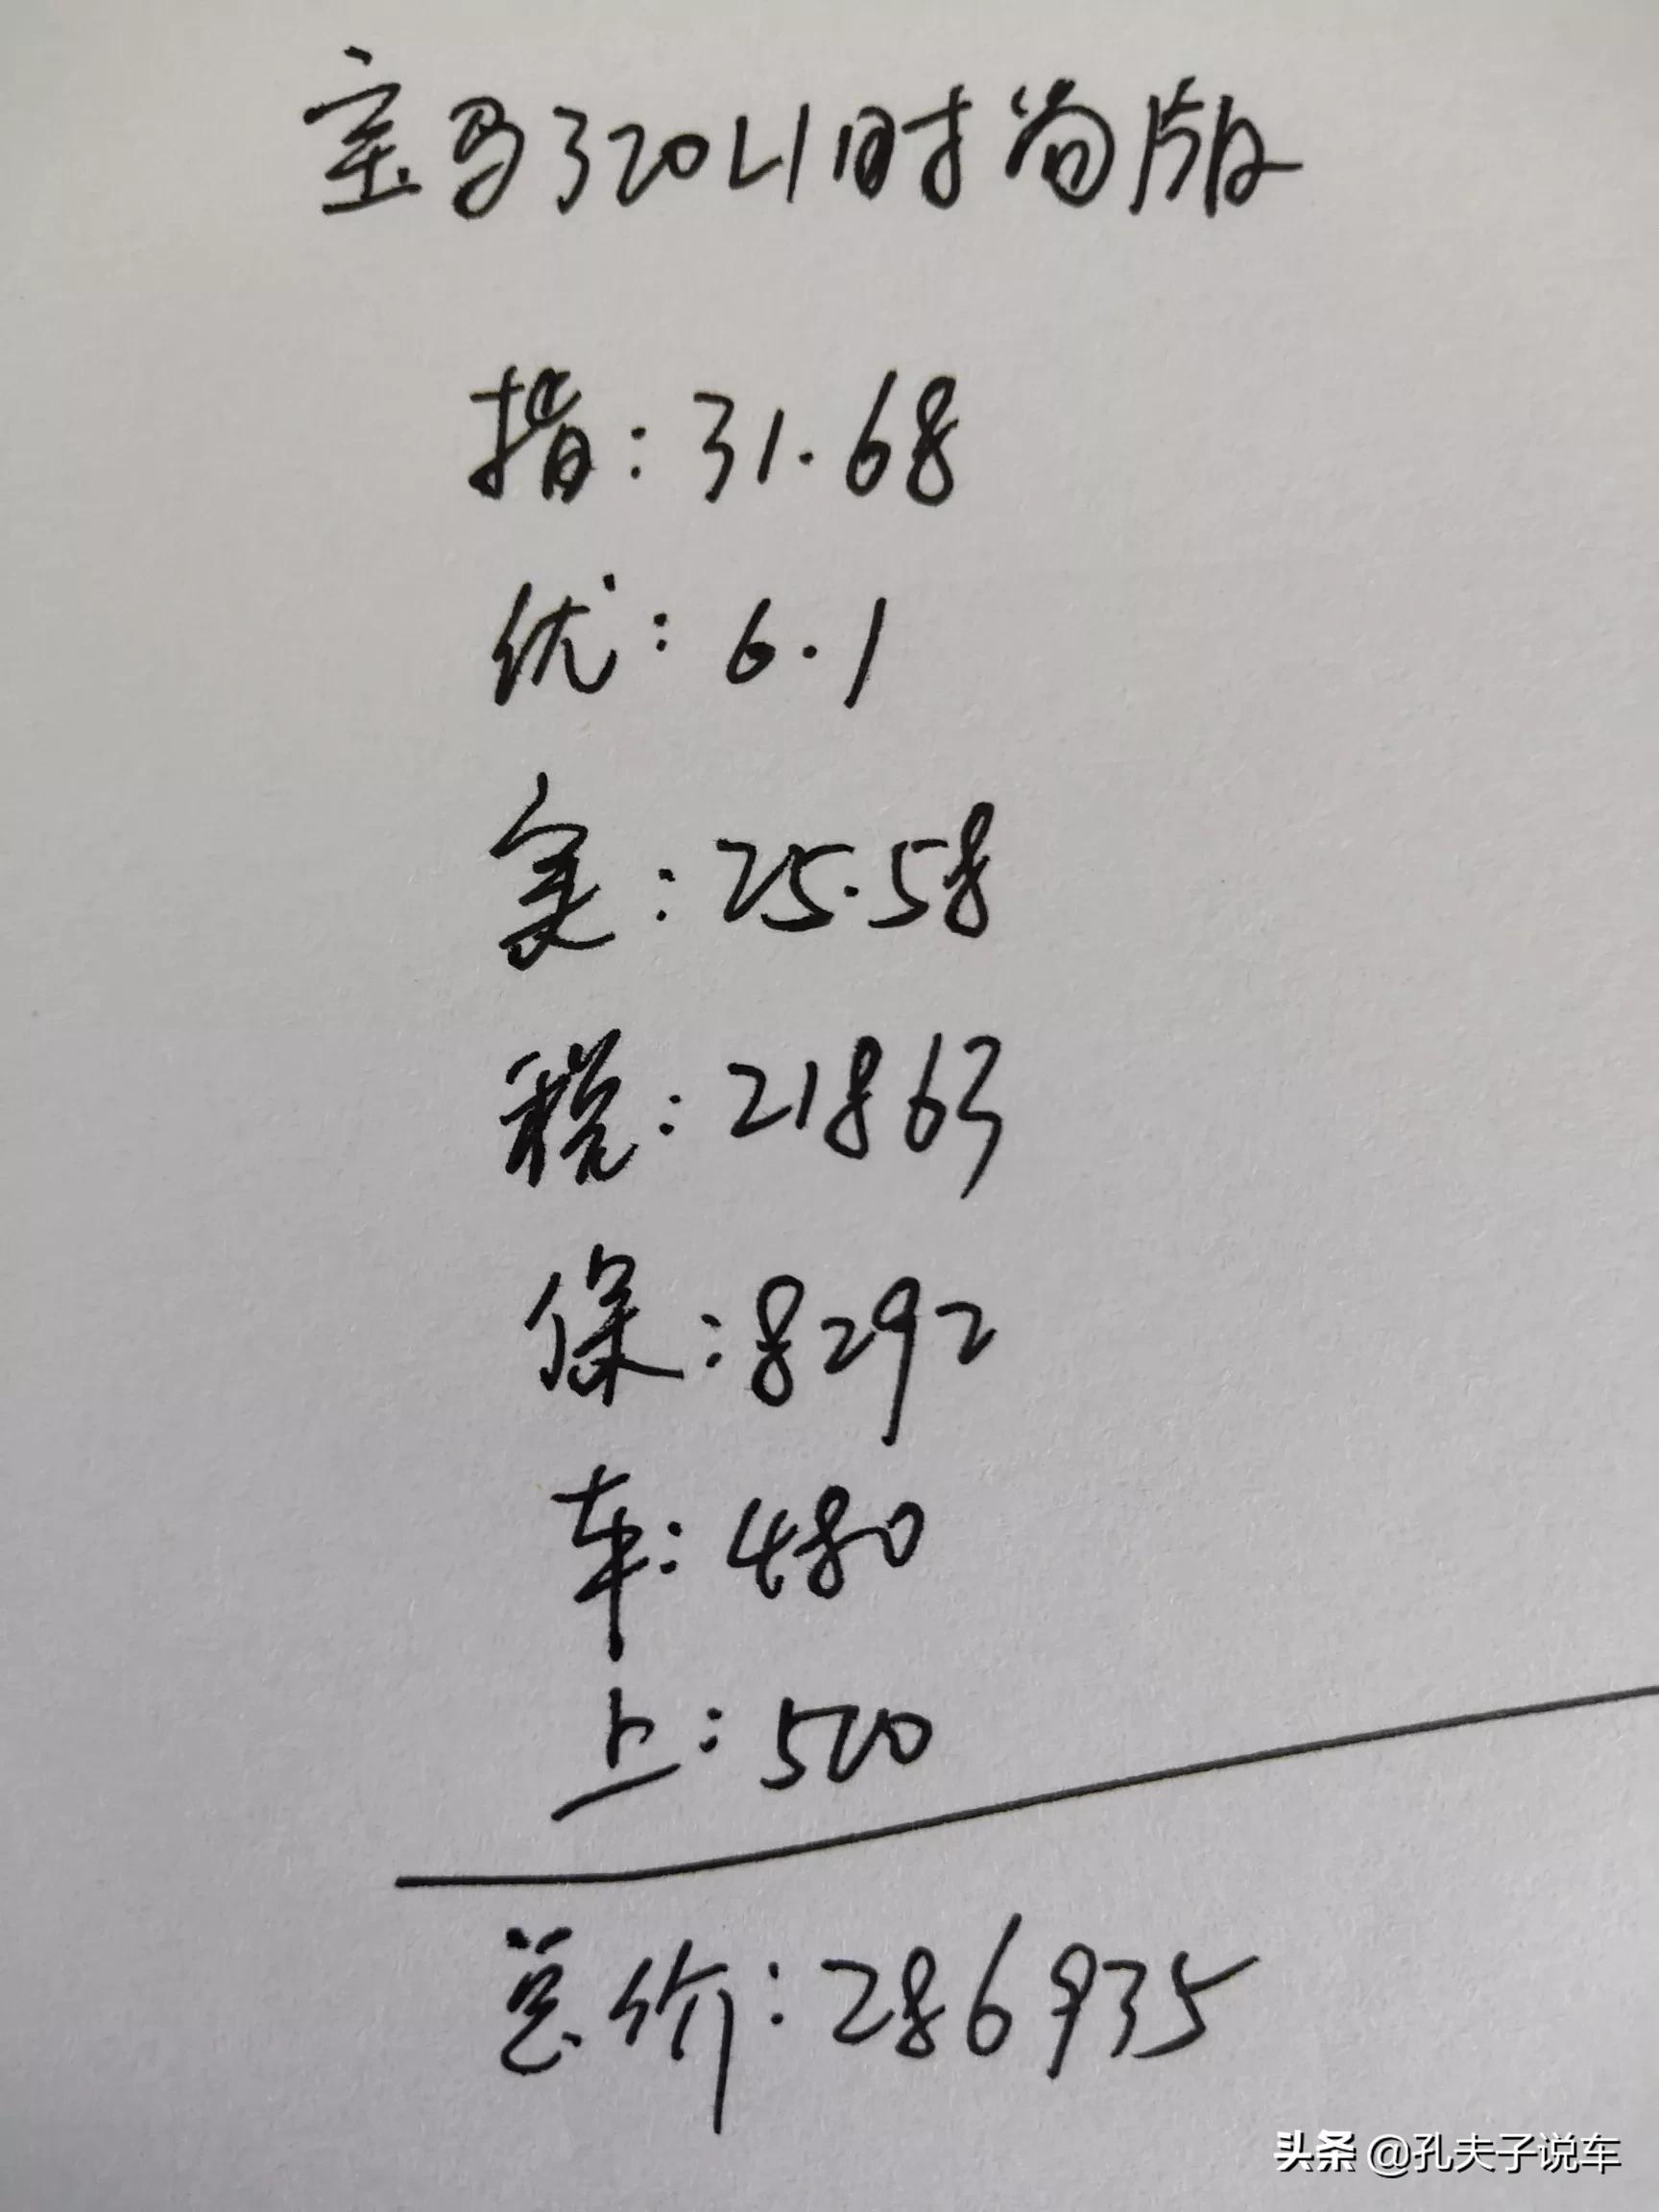 宝马320Li时尚版
指:31.68
优:6.1
实:25.58
税:21863
保:8292
车:480
上:500
总价:286935
头条 @孔夫子说车